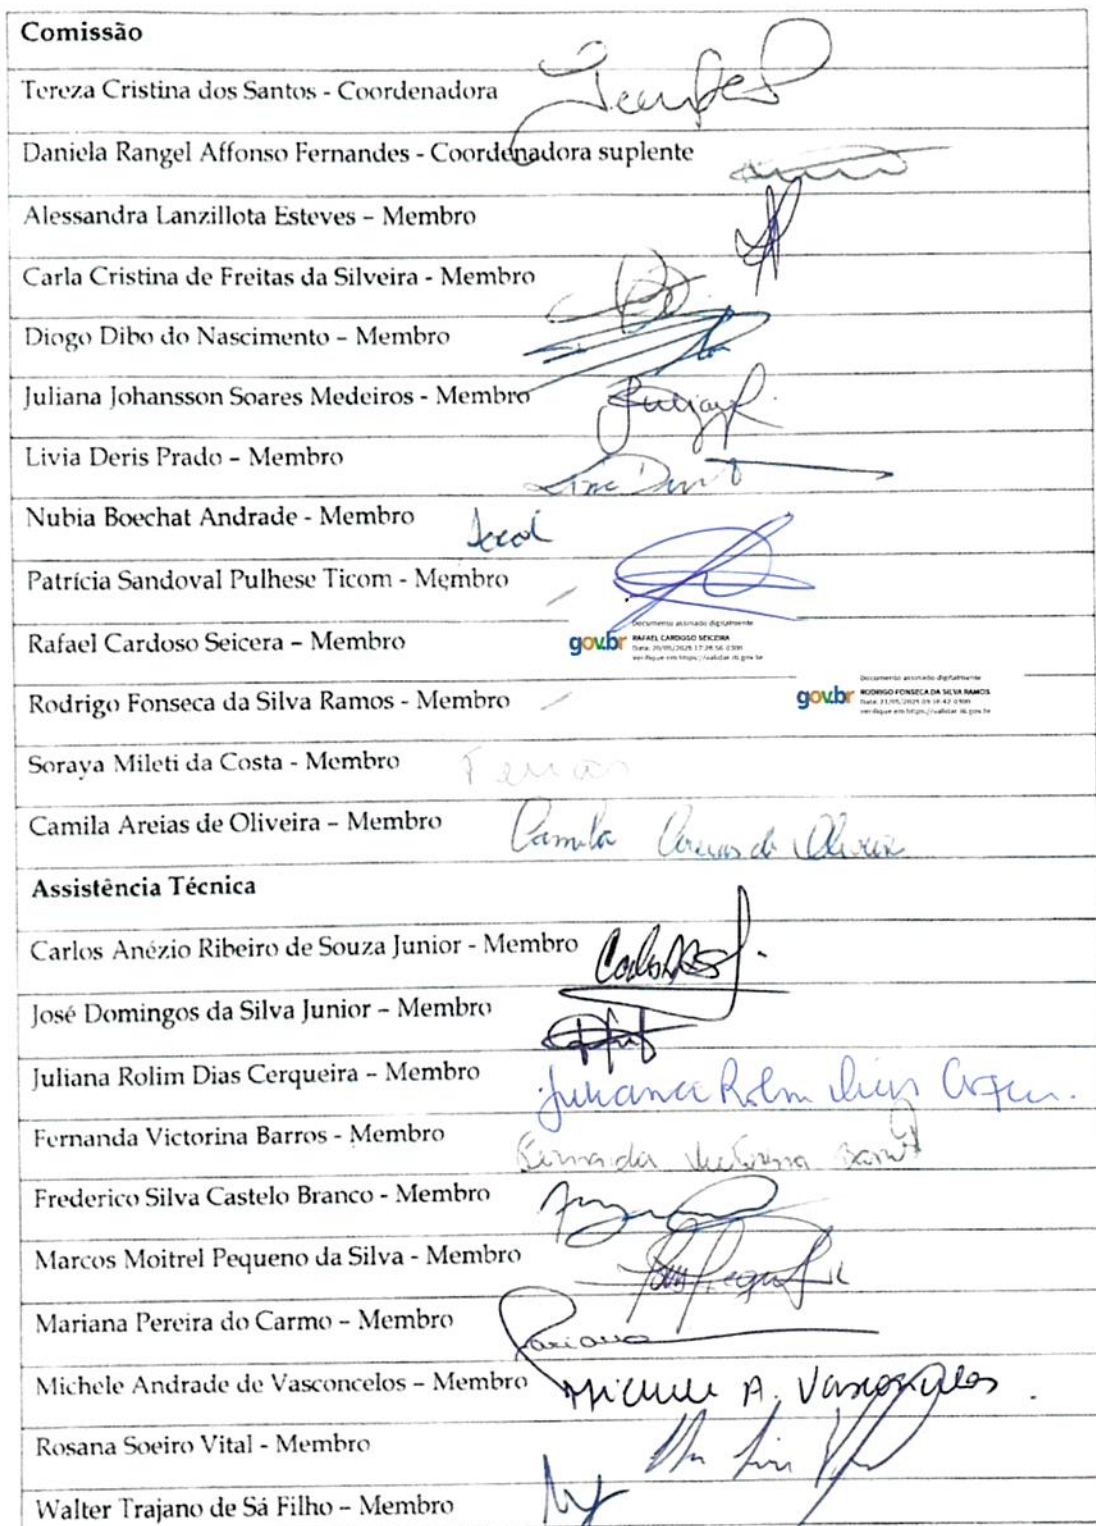 Comissão
Tereza Cristina dos Santos - Coordenadora
Daniela Rangel Affonso Fernandes - Coordenadora suplente
Alessandra Lanzillota Esteves – Membro
Carla Cristina de Freitas da Silveira - Membro
Diogo Dibo do Nascimento – Membro
Juliana Johansson Soares Medeiros - Membro
Livia Deris Prado – Membro
Nubia Boechat Andrade - Membro
Patrícia Sandoval Pulhese Ticom - Membro
Documento assinado digitalmente
Rafael Cardoso Seicera – Membro gov.br RAFAEL CARDOSO SEICERA
Verifique em https://validar.iti.gov.br
Documento assinado digitalmente
Rodrigo Fonseca da Silva Ramos - Membro gov.br RODRIGO FONSECA DA SILVA RAMOS
Verifique em https://validar.iti.gov.br
Soraya Mileti da Costa - Membro Ferias
Camila Areias de Oliveira – Membro Camila Areias de Oliveira
Assistência Técnica
Carlos Anézio Ribeiro de Souza Junior - Membro
José Domingos da Silva Junior – Membro
Juliana Rolim Dias Cerqueira – Membro Juliana Rolim Dias
Fernanda Victorina Barros - Membro Fernanda Victorina Barros
Frederico Silva Castelo Branco - Membro
Marcos Moitrel Pequeno da Silva - Membro
Mariana Pereira do Carmo – Membro Mariana
Michele Andrade de Vasconcelos – Membro Michele A. Vasconcelos
Rosana Soeiro Vital - Membro
Walter Trajano de Sá Filho – Membro